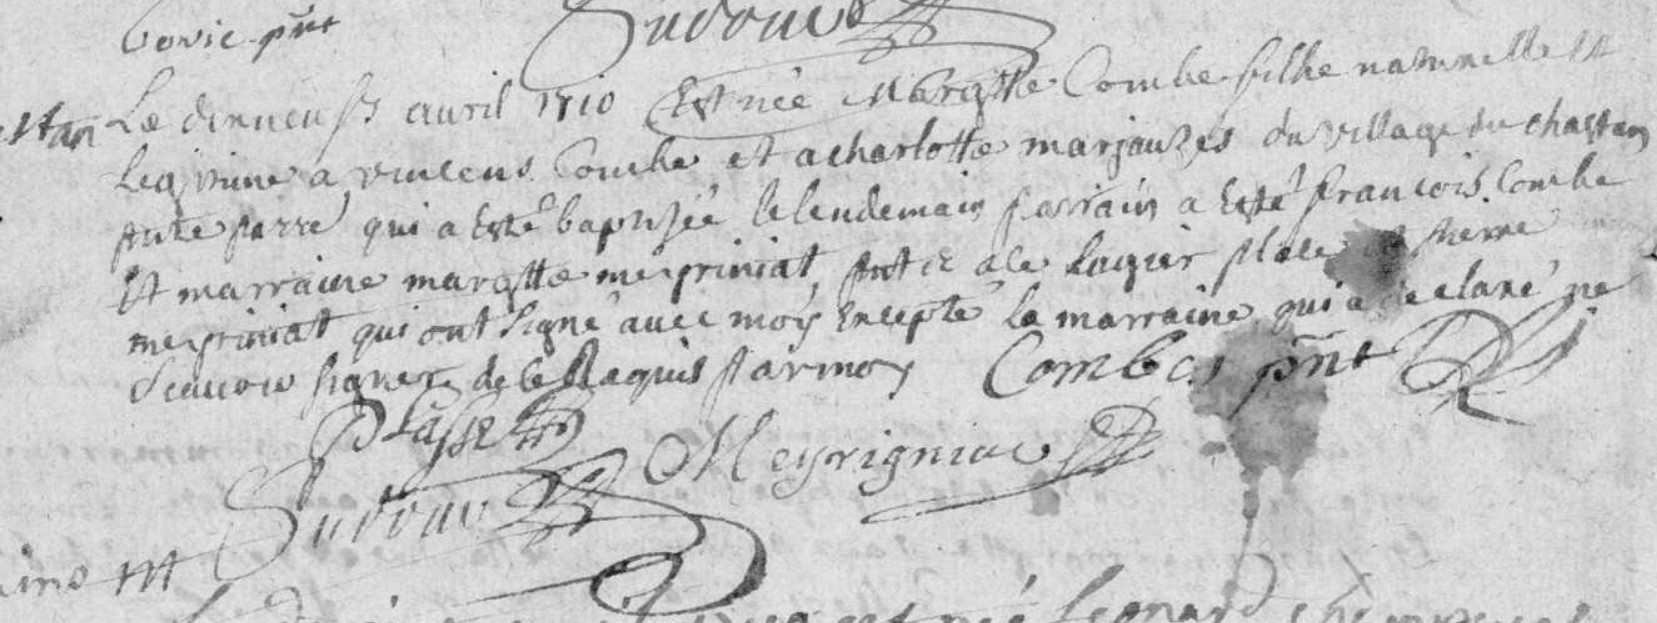 pnt Sudour
Le dixneufs avril 1710 Est née Margtte Combe filhe naturelle et
Legitime a vincens Combe et a charlotte marjauzes du village du chastan
qui a Esté baptisée le lendemain parrain a Esté francois Combe
Et marraine margtte meyriniat, pierre
meyriniat qui ont signé avec moy Excepté la marraine qui a declaré ne
scavoir signer de ce Requis par moy Combes pnt
Plasse
Meyrigniac
Sudour
est née Leonard